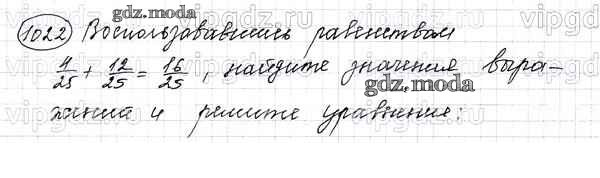 gdz.moda
1022 Воспользовавшись равенством
4/25 + 12/25 = 16/25, найдите значения выра-
жений и решите уравнения:
gdz.moda
gdz.moda